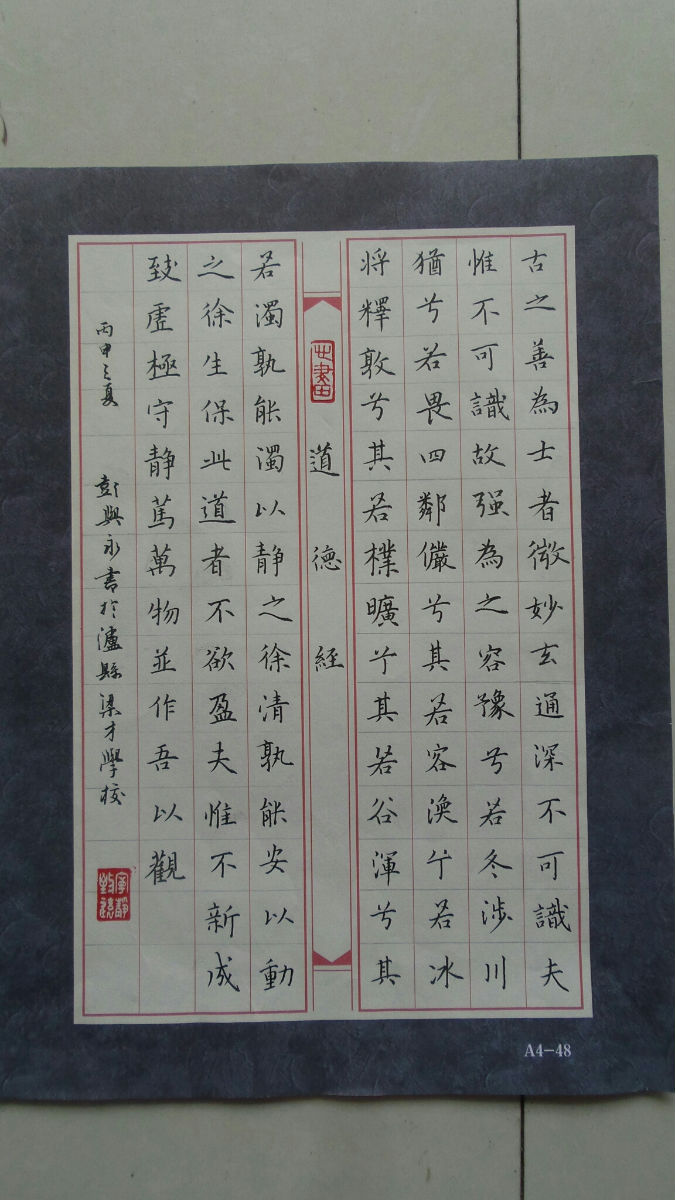 古之善為士者微妙玄通深不可識夫
惟不可識故强為之容豫兮若冬涉川
猶兮若畏四鄰儼兮其若容渙兮若冰
将釋敦兮其若樸曠兮其若谷渾兮其
道德経
若濁孰能濁以静之徐清孰能安以動
之徐生保此道者不欲盈夫惟不新成
致虚極守静篤萬物並作吾以觀
丙申之夏 彭興永書於瀘縣梁才學校
寧靜致遠
A4-48